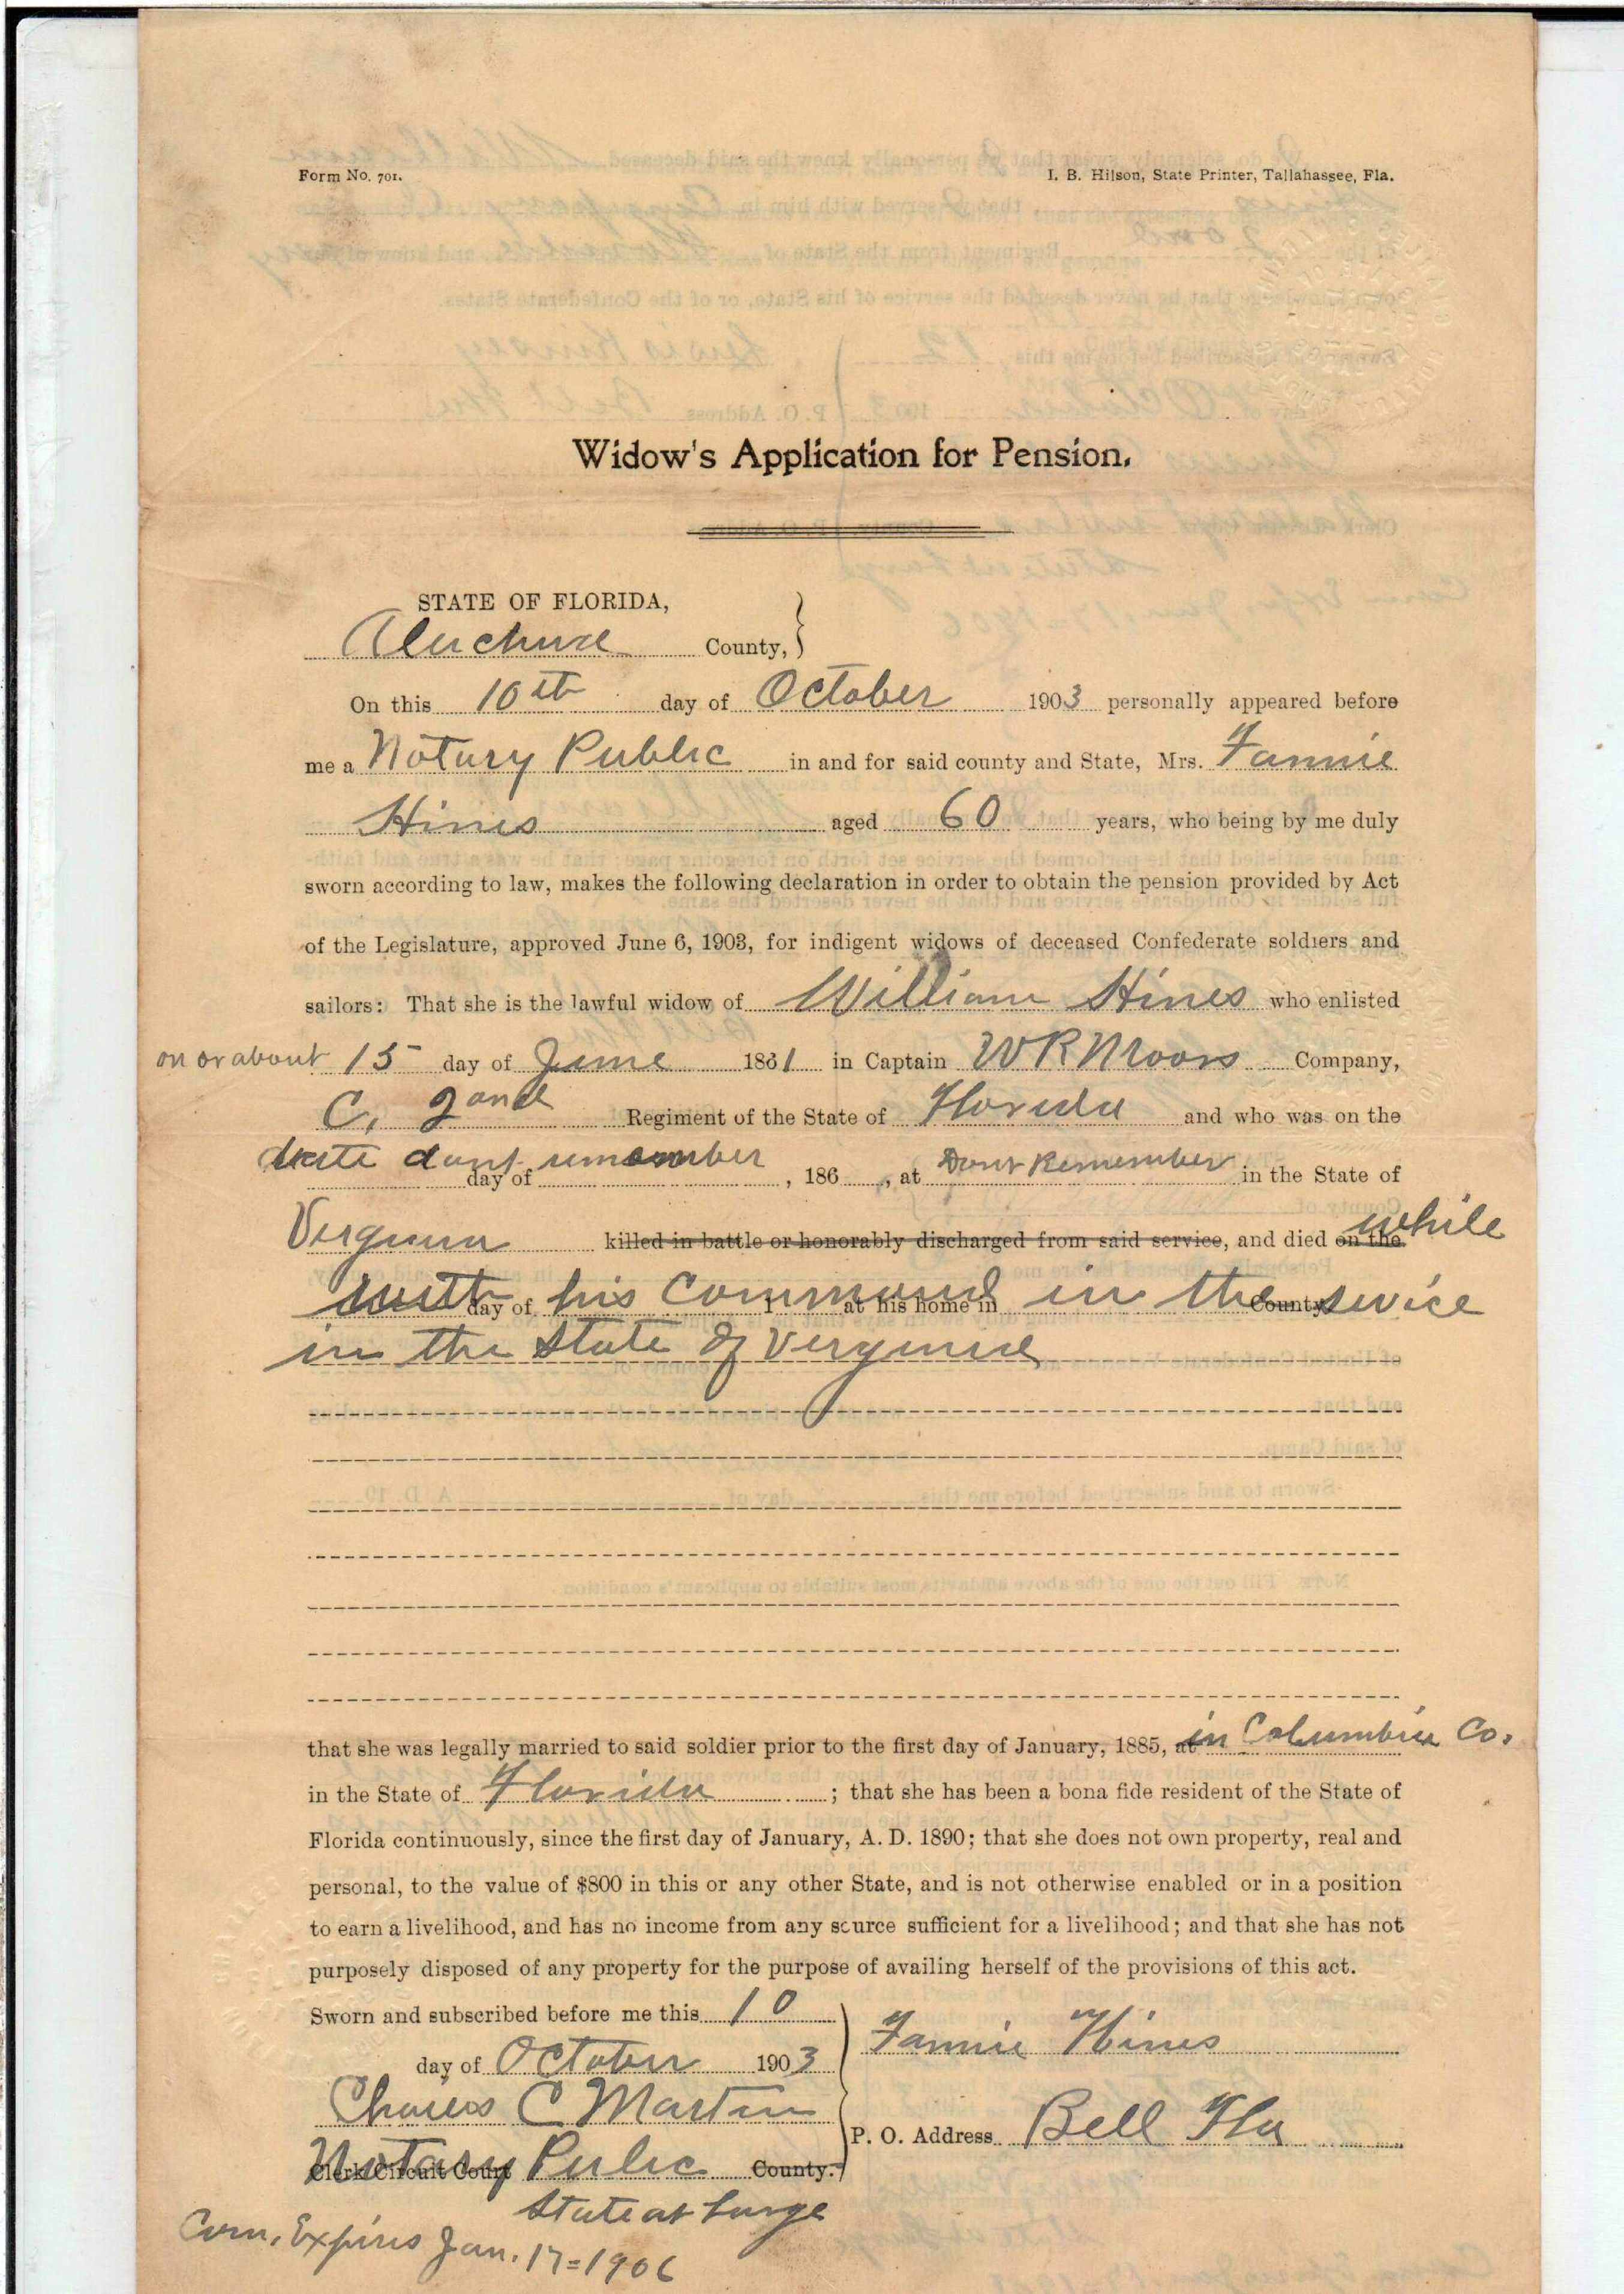 Form No. 701.
I. B. Hilson, State Printer, Tallahassee, Fla.
Widow's Application for Pension.
STATE OF FLORIDA,
Aluchua County,
On this 10th day of October 1903 personally appeared before
me a Notary Public in and for said county and State, Mrs. Fannie
Hines aged 60 years, who being by me duly
sworn according to law, makes the following declaration in order to obtain the pension provided by Act
of the Legislature, approved June 6, 1903, for indigent widows of deceased Confederate soldiers and
sailors: That she is the lawful widow of William Hines who enlisted
on or about 15 day of June 1861 in Captain W R Moors Company,
C, 2ond Regiment of the State of Florida and who was on the
date dont remember day of , 186 , at Dont Remember in the State of
Vergina killed in battle or honorably discharged from said service, and died on the while
with day of his Command 1 at his home in in the County service
in the State of Verginia
that she was legally married to said soldier prior to the first day of January, 1885, at in Columbia Co.
in the State of Florida ; that she has been a bona fide resident of the State of
Florida continuously, since the first day of January, A. D. 1890; that she does not own property, real and
personal, to the value of $800 in this or any other State, and is not otherwise enabled or in a position
to earn a livelihood, and has no income from any source sufficient for a livelihood; and that she has not
purposely disposed of any property for the purpose of availing herself of the provisions of this act.
Sworn and subscribed before me this 10
day of October 1903
Fannie Hines
Charles C Martin
P. O. Address Bell Fla
Clerk Circuit Court Notary Public County.
State at Large
Com, Expires Jan. 17=1906